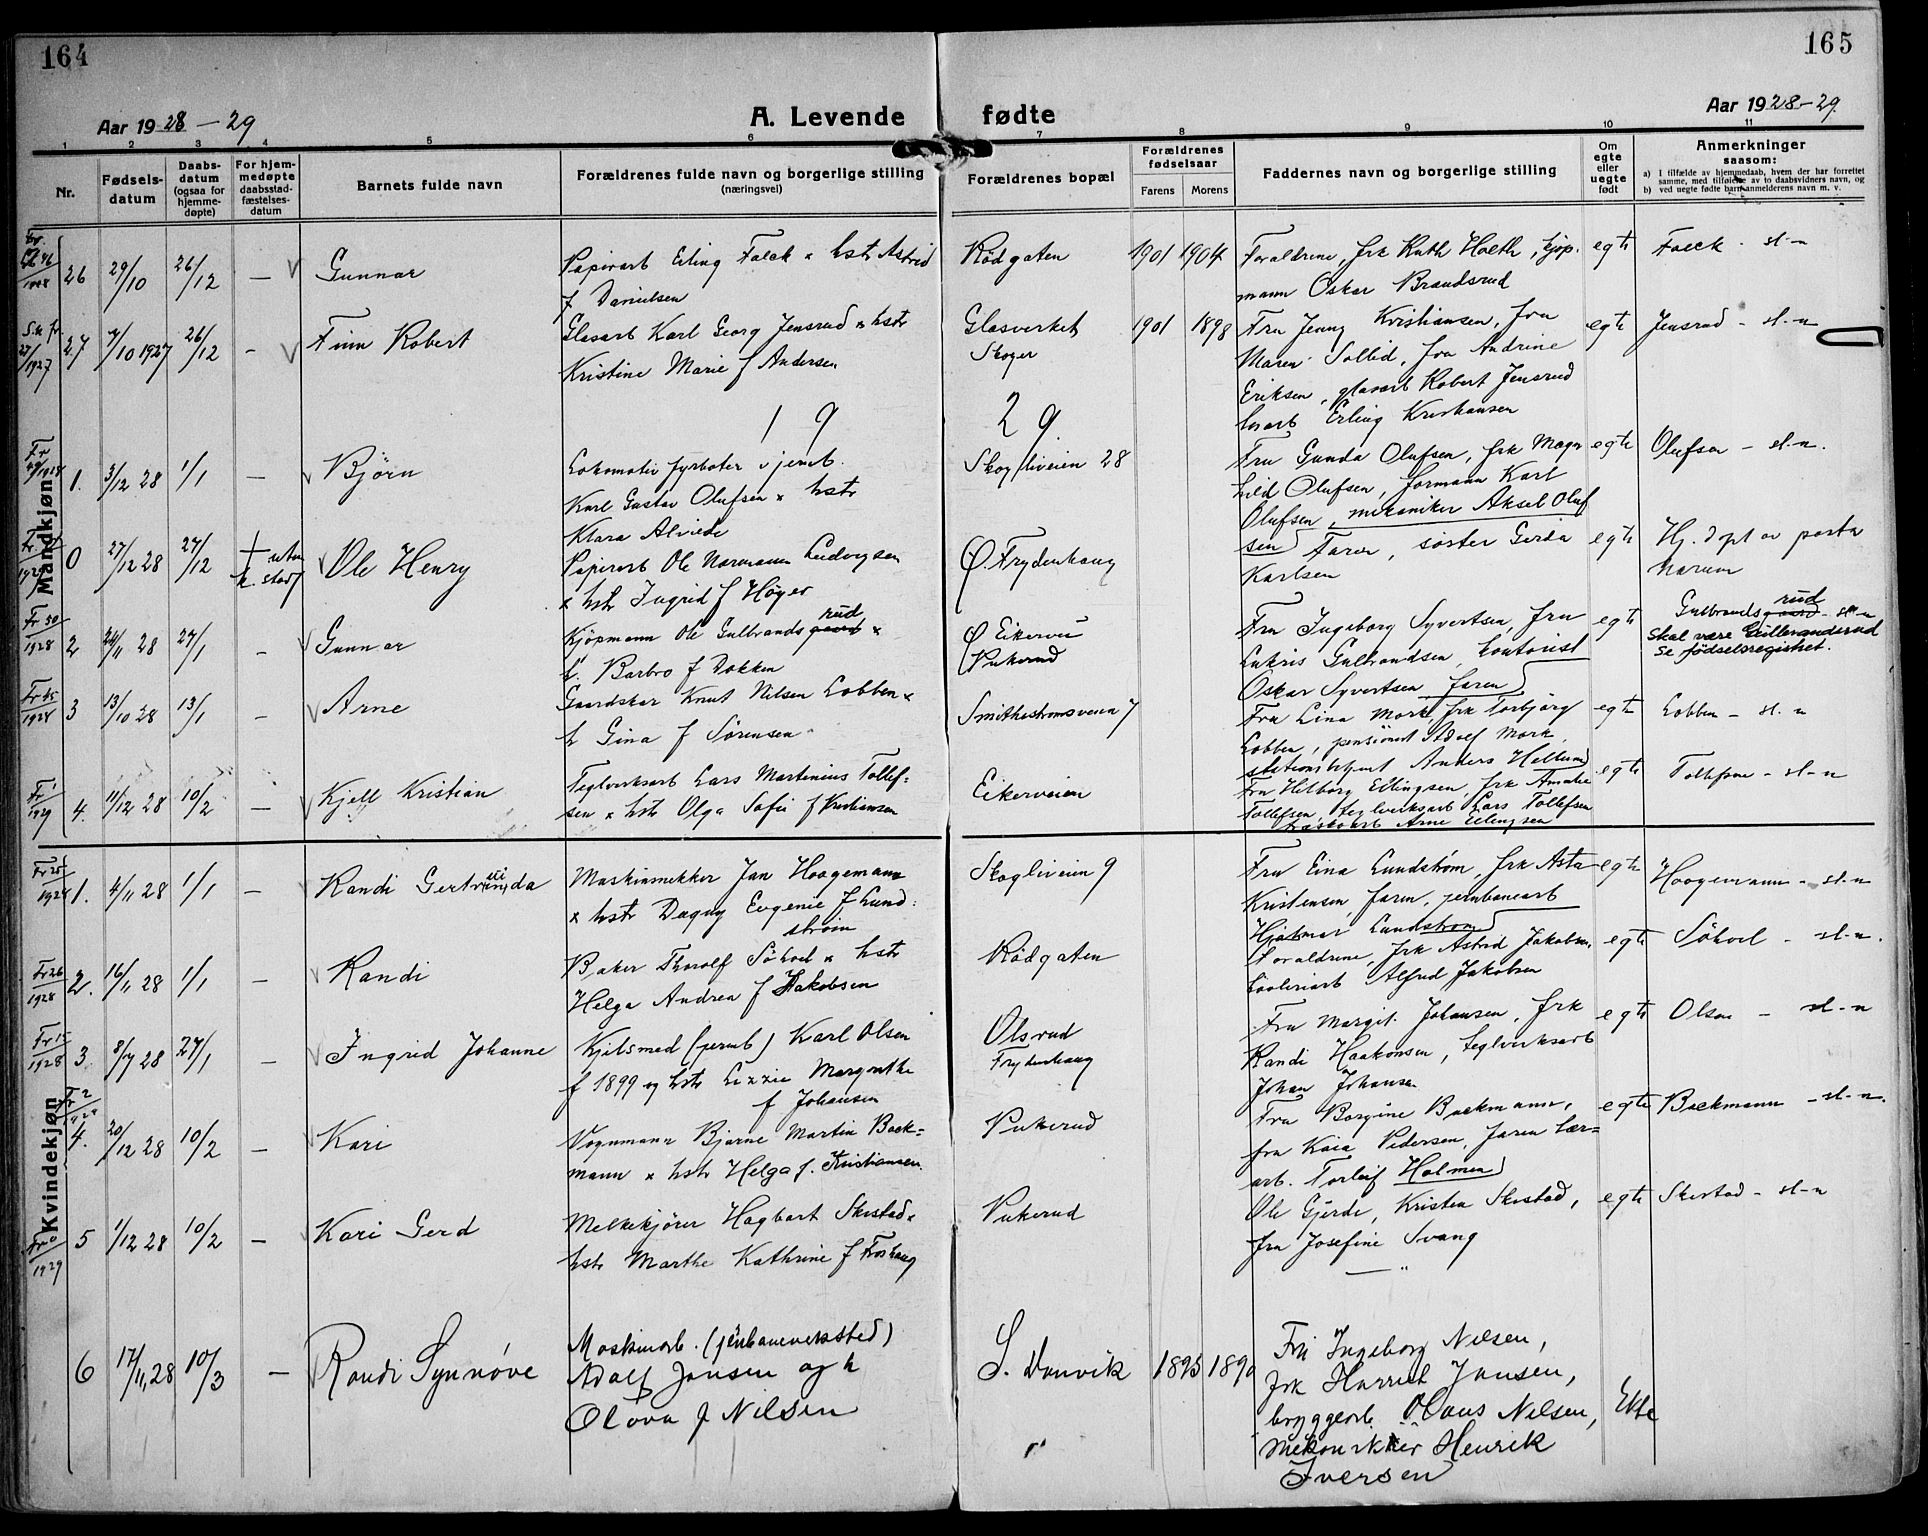 164
165
Aar 1928-29
A. Levende fødte
Aar 1928-29
1 2 3 4 5 6 7 8 9 10 11
Nr.
Fødsels-
datum
Daabs-
datum
(ogsaa for
hjemme-
døpte)
For hjem-
medøpte
daabsstad-
fæstelses-
datum
Barnets fulde navn
Forældrenes fulde navn og borgerlige stilling
(næringsvei)
Forældrenes bopæl
Forældrenes
fødselsaar
Farens Morens
Faddernes navn og borgerlige stilling
Om
egte
eller
uegte
født
Anmerkninger
saasom:
a) I tilfælde av hjemmedaab, hvem der har forrettet
samme, med tilføielse av to daabsvidners navn, og
b) ved uegte fødte barn anmelderens navn m. v.
Mandkjøn
26 29/10 26/12 — Gunnar
Papirarb Erling Falck x hstr Astrid
f Danielsen
Rödgaten 1901 1904
Foraldrene, frk Ruth Holth, kjøp-
mann Oskar Brandsrud
egte
Falck - sl-n
27 7/10 1927 26/12 - Finn Robert
Glasarb Karl Georg Jensrud x hstr
Kristine Marie f Andersen
Glasverket
Skoger
1901 1898
Fru Jenny Kristiansen, fru
Maren Sollid, fru Andrine
Eriksen, glasarb Robert Jensrud
Erling Kristiansen
egte
Jensrud - sl-n
1929
1. 3/12 28 1/1 — Björn
Lokomotiv fyrböter v jernb.
Karl Gustav Olufsen x hstr
Klara Alvilde
Skogliveien 28
Fru Gunda Olufsen, frk Magn
hild Olufsen, formann Karl
Olufsen, mekaniker Aksel Oluf
sen
egte
Olufsen - sl-n.
0 27/12 28 27/12 Ole Henry
Papirarb Ole Normann Ludvigsen
x hstr Ingrid f Høyer
Ø Frydenhaug
Faren, søster Gerda
Karlsen
egte
Hj. döpt av pastor
2 24/11 28 27/1 - Gunnar
Kjøpmann Ole Gulbrandsrud x
h. Barbro f Dokken
Ø Eikervei
Pukerud
Fru Ingeborg Syvertsen, fru
Gulbrandsen, kontorist
Oskar Syvertsen, faren
egte
Gulbrandsrud - sl-n
Skal være Gulbrandsrud
se fødselsregistret.
3 13/10 28 13/1 - Arne
Gaardskar Knut Nilsen Lobben x
h Gina f Sørensen
Smithestrømsveien 7
Fru Lina Mork, frk Torbjørg
Lobben, pensionert Adolf Mork,
Anders Hellum
egte
Lobben - sl. n
4. 11/12 28 10/2 — Kjell Kristian
Teglverksarb Lars Martinius Tollef-
sen x hstr Olga Sofie f Kristiansen
Eikerveien
Fru Hilborg Ellingsen, frk Amalie
Tollefsen, teglverksarb Lars Tollefsen
Arne Ellingsen
egte
Tollefsen - sl-n
Kvindekjøn
1. 4/11 28 1/1 — Randi
Maskinsnekker Jan Haagemann
x hstr Dagny Evgenie f Lund-
strøm
Skogliveien 9
Fru Eina Lundstrøm, frk Asta
Kristensen, faren, jernbanearb
Hjalmar Lundstrøm
egte
Haagemann - sl-n
2. 16/11 28 1/1 — Randi
Baker Thorolf x hstr
Helga Andrea f Jakobsen
Rödgaten
Foraldrene, frk Astrid Jakobsen,
Alfred Jakobsen
egte
sl-n.
3. 8/7 28 27/1 — Ingrid Johanne
Kjelsmed (jernb) Karl Olsen
f 1899 og hstr Lizzie Margrethe
f Johansen
Olsrud
Frydenhaug
Fru Margit Johansen, frk
Randi Haakonsen, teglverksarb
Johan Johansen
egte
Olsen - sl-n
4. 20/12 28 10/2 — Kari
Vognmann Bjarne Martin Back-
mann x hstr Helga f. Kristiansen.
Pukerud
Fru Borgine Backmann,
fru Kaia Pedersen, faren
arb. Torleif Holmen
egte
Backmann - sl-n.
5 1/12 28 10/2 — Kari Gerd
Melkekjörer Hagbart Skistad x
hstr Marthe Kathrine f Froshaug
Pukerud
Ole Gjerde, Kristen Skistad,
fru Josefine Svang
egte
Skistad - sl-n
6 17/11 28 10/3 — Randi Synnöve
Maskinarb. (jernbaneverksted)
Adolf Jansen og h
Olova f Nilsen
S. Danvik 1893 1890
Fru Ingeborg Nilsen,
frk Harriet Jansen,
bryggearb. Olaus Nilsen,
mekaniker Henrik
Iversen
Ekte